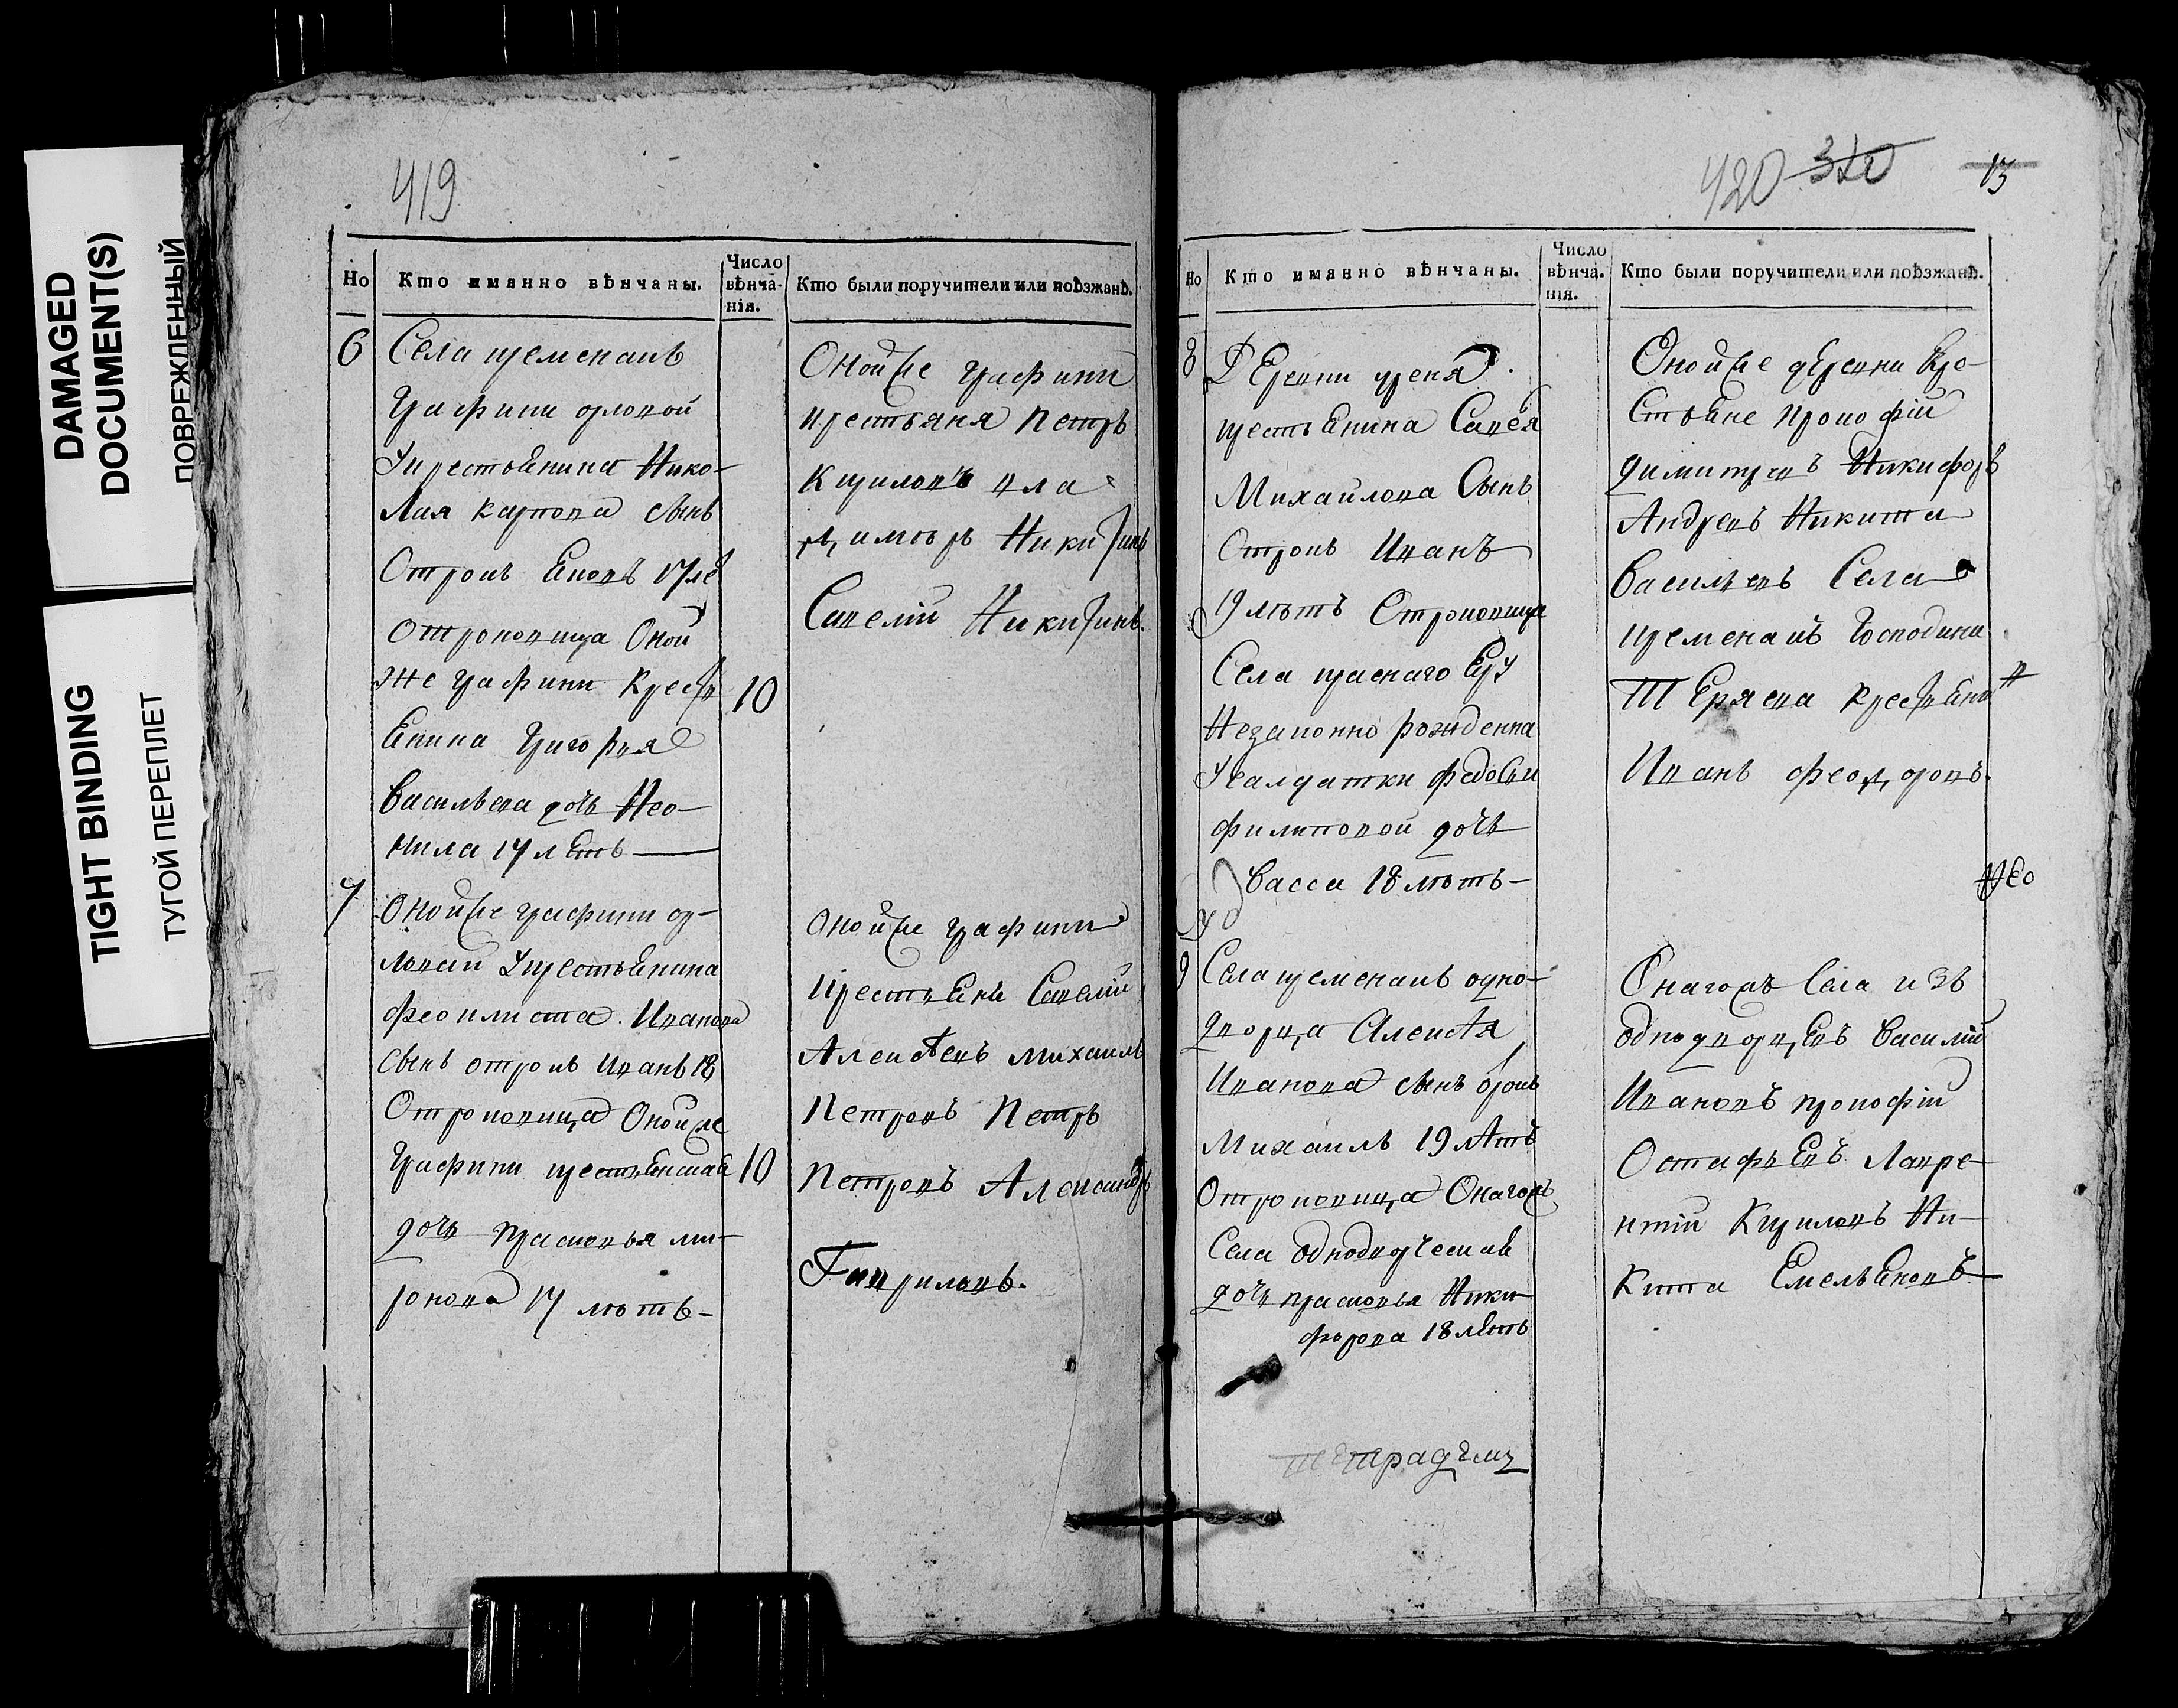 DAMAGED
DOCUMENT(S)
ПОВРЕЖДЕННЫЙ
TIGHT BINDING
ТУГОЙ ПЕРЕПЛЕТ
419
Но
Кто имянно вѣнчаны.
Число вѣнча-нія.
Кто были поручители или поѣзжанѣ.
6
Села кременакъ
Графини орловой
Укрестьенина Нико-
лая карпова сынъ
Отрокъ Еповъ 17 ле
Отроковица Оной
же графини Крест
Енина Григорья
Васильева дочь Нео-
нила 17 летъ
10
Онойже графини
крестьяня Петръ
Кириловъ вла
димъръ Никитинъ
Савелій Никитинъ.
7
Онойже графини ор-
ловай Укрестьенина
феоплиста Иванова
сынъ отрокъ Иванъ 18
Отроковица Онойже
Графини крестьенскай
дочь Прасковья ми-
ронова 17 лѣтъ-
10
онойже графини
крестьенъ Савелий
Алексѣевъ Михаилъ
Петровъ Петръ
Петровъ Александръ
Гавриловъ.
420 310 13
Но
Кто имянно вѣнчаны.
Число вѣнча-нія.
Кто были поручители или поѣзжанѣ.
8
крестьЕнина Савея
Михайлова Сынъ
Отрокъ Иванъ
19 лѣтъ Отроковица
Села краснаго
Незаконно рожденна
Усалдатки федосьи
филиповой дочь
Васса 18 лѣтъ-
Онойже дЕревни Кре-
стьЕне Прокофій
димитревъ Никифоръ
Андревъ Никита
Васильевъ Села
кременакъ Господина
Иванъ феодоровъ.
9
Села кременакъ одно-
дворца Алексѣя
Иванова сынъ отрокъ
Михаилъ 19 лѣтъ
Отроковица Онагожъ
Села однодворческая
дочь прасковья Ники-
форова 18 лЕтъ
Онагожъ Села изъ
однодворцЕвъ Василий
Ивановъ прокофій
ОстафьЕвъ Лавре-
нтій Кириловъ Ни-
кита ЕмельЕновъ